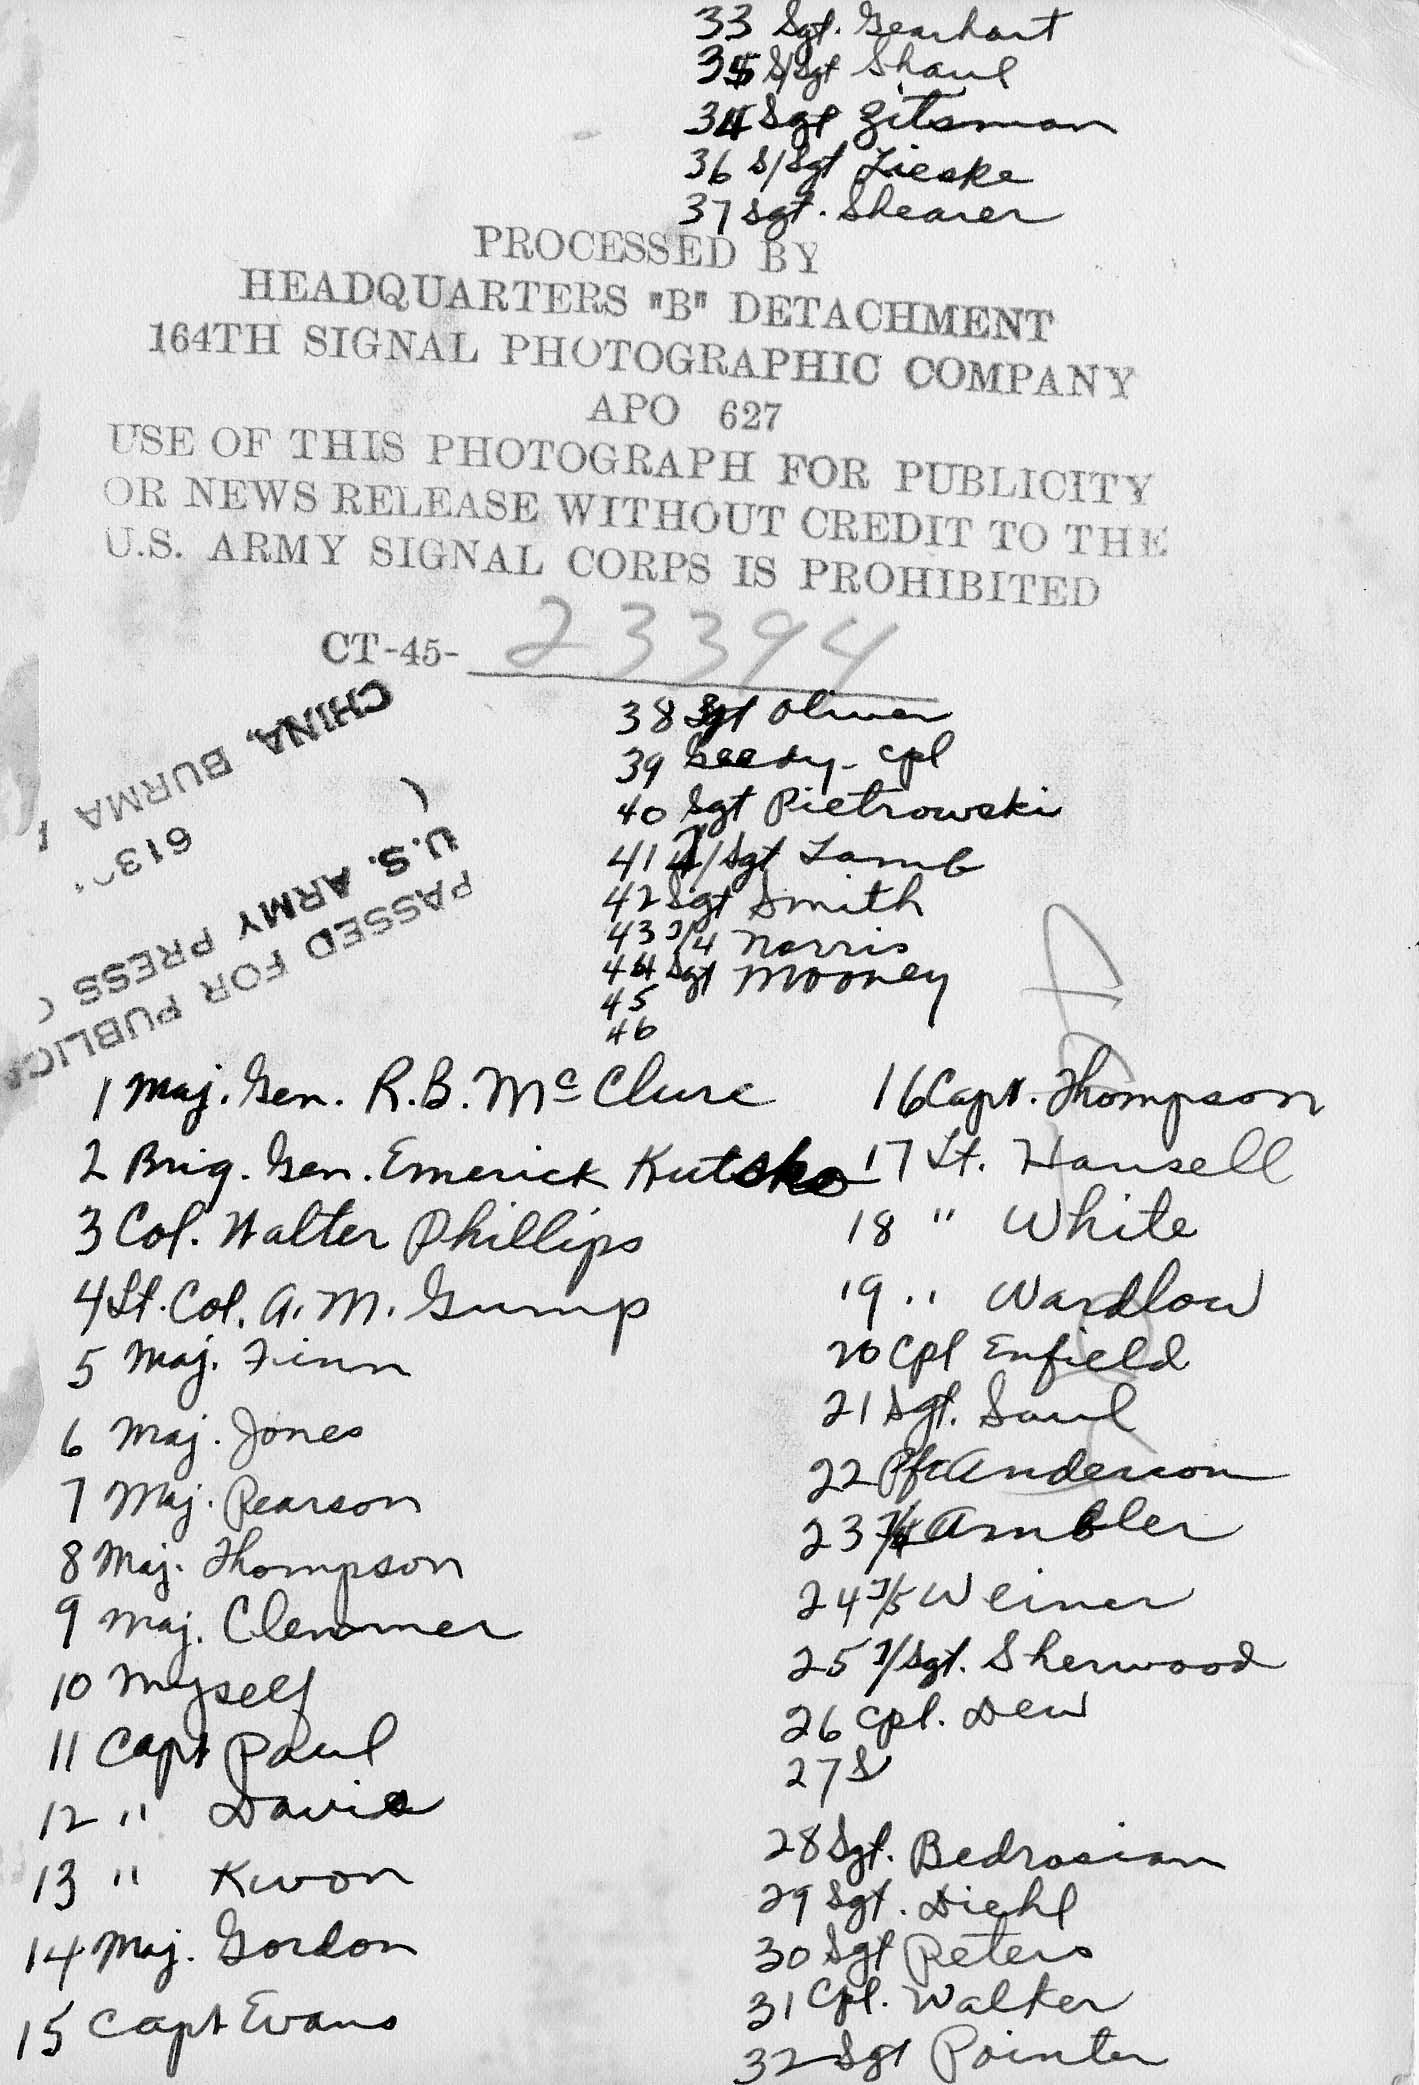 33 Sgt. Gearhart
35 S/Sgt Shaul
34 Sgt Zitsman
36 S/Sgt Lieske
37 Sgt. Shearer
PROCESSED BY
HEADQUARTERS "B" DETACHMENT
164TH SIGNAL PHOTOGRAPHIC COMPANY
APO 627
USE OF THIS PHOTOGRAPH FOR PUBLICITY
OR NEWS RELEASE WITHOUT CREDIT TO THE
U.S. ARMY SIGNAL CORPS IS PROHIBITED
CT-45- 23394
PASSED FOR PUBLICA
U.S. ARMY PRESS
613
CHINA, BURMA
38 Sgt Oliver
39 Geedy - Cpl
40 Sgt Pietrowski
41 T/Sgt Lamb
42 Sgt Smith
43 T/4 Norris
44 Sgt Mooney
45
46
1 Maj. Gen. R.B. McClure
2 Brig. Gen. Emerick Kutsko
3 Col. Walter Phillips
4 Lt. Col. A.M. Gump
5 Maj. Finn
6 Maj. Jones
7 Maj. Pearson
8 Maj. Thompson
9 Maj. Clemmer
10 Myself
11 Capt Paul
12 " Davis
13 " Kwon
14 Maj. Gordon
15 Capt Evans
16 Capt. Thompson
17 Lt. Hansell
18 " White
19 " Wardlow
20 Cpl Enfield
21 Sgt. Saul
22 Pfc Anderson
23 T/4 Ambler
24 T/5 Weiner
25 T/Sgt. Sherwood
26 Cpl. Dew
27 S
28 Sgt. Bedrosian
29 Sgt. Diehl
30 Sgt Peters
31 Cpl. Walker
32 Sgt Pointer